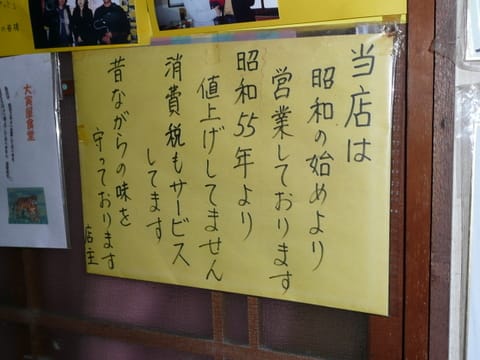 当店は
昭和の始めより
営業しております
昭和55年より
値上げしてません
消費税もサービス
してます
昔ながらの味を
守っております
店主
大寅屋食堂